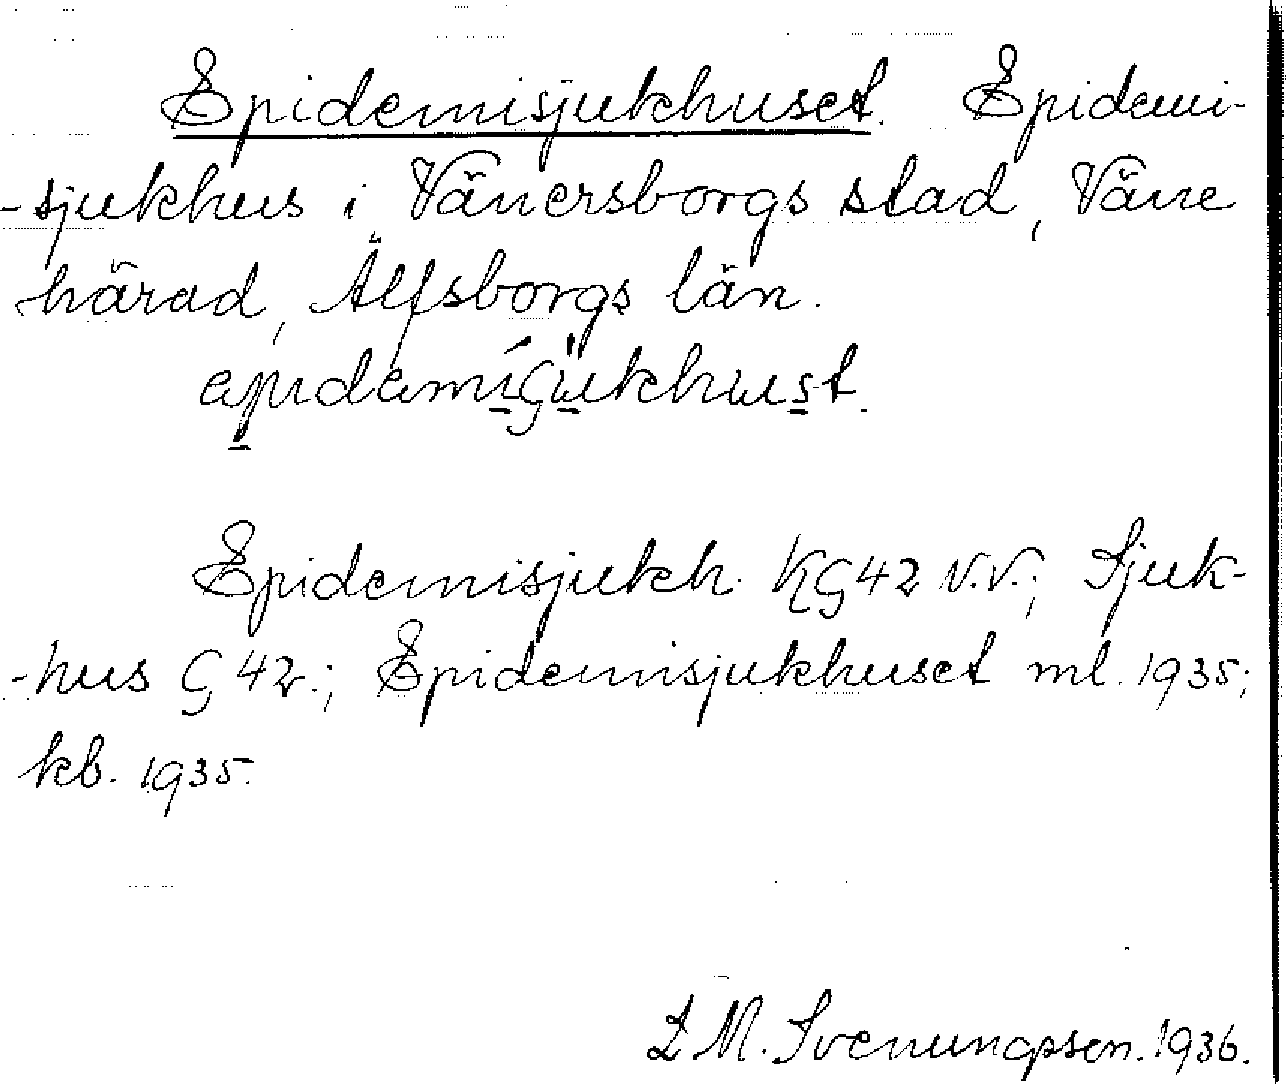 Epidemisjukhuset. Epidemi-
-sjukhus i Vänersborgs stad, Väne
härad, Älfsborgs län.
Epidemisjukh. KG42 N.V.; Sjuk-
-hus G 42.; Epidemisjukhuset ml. 1935;
kb. 1935.
L M. Svenungsson. 1936.